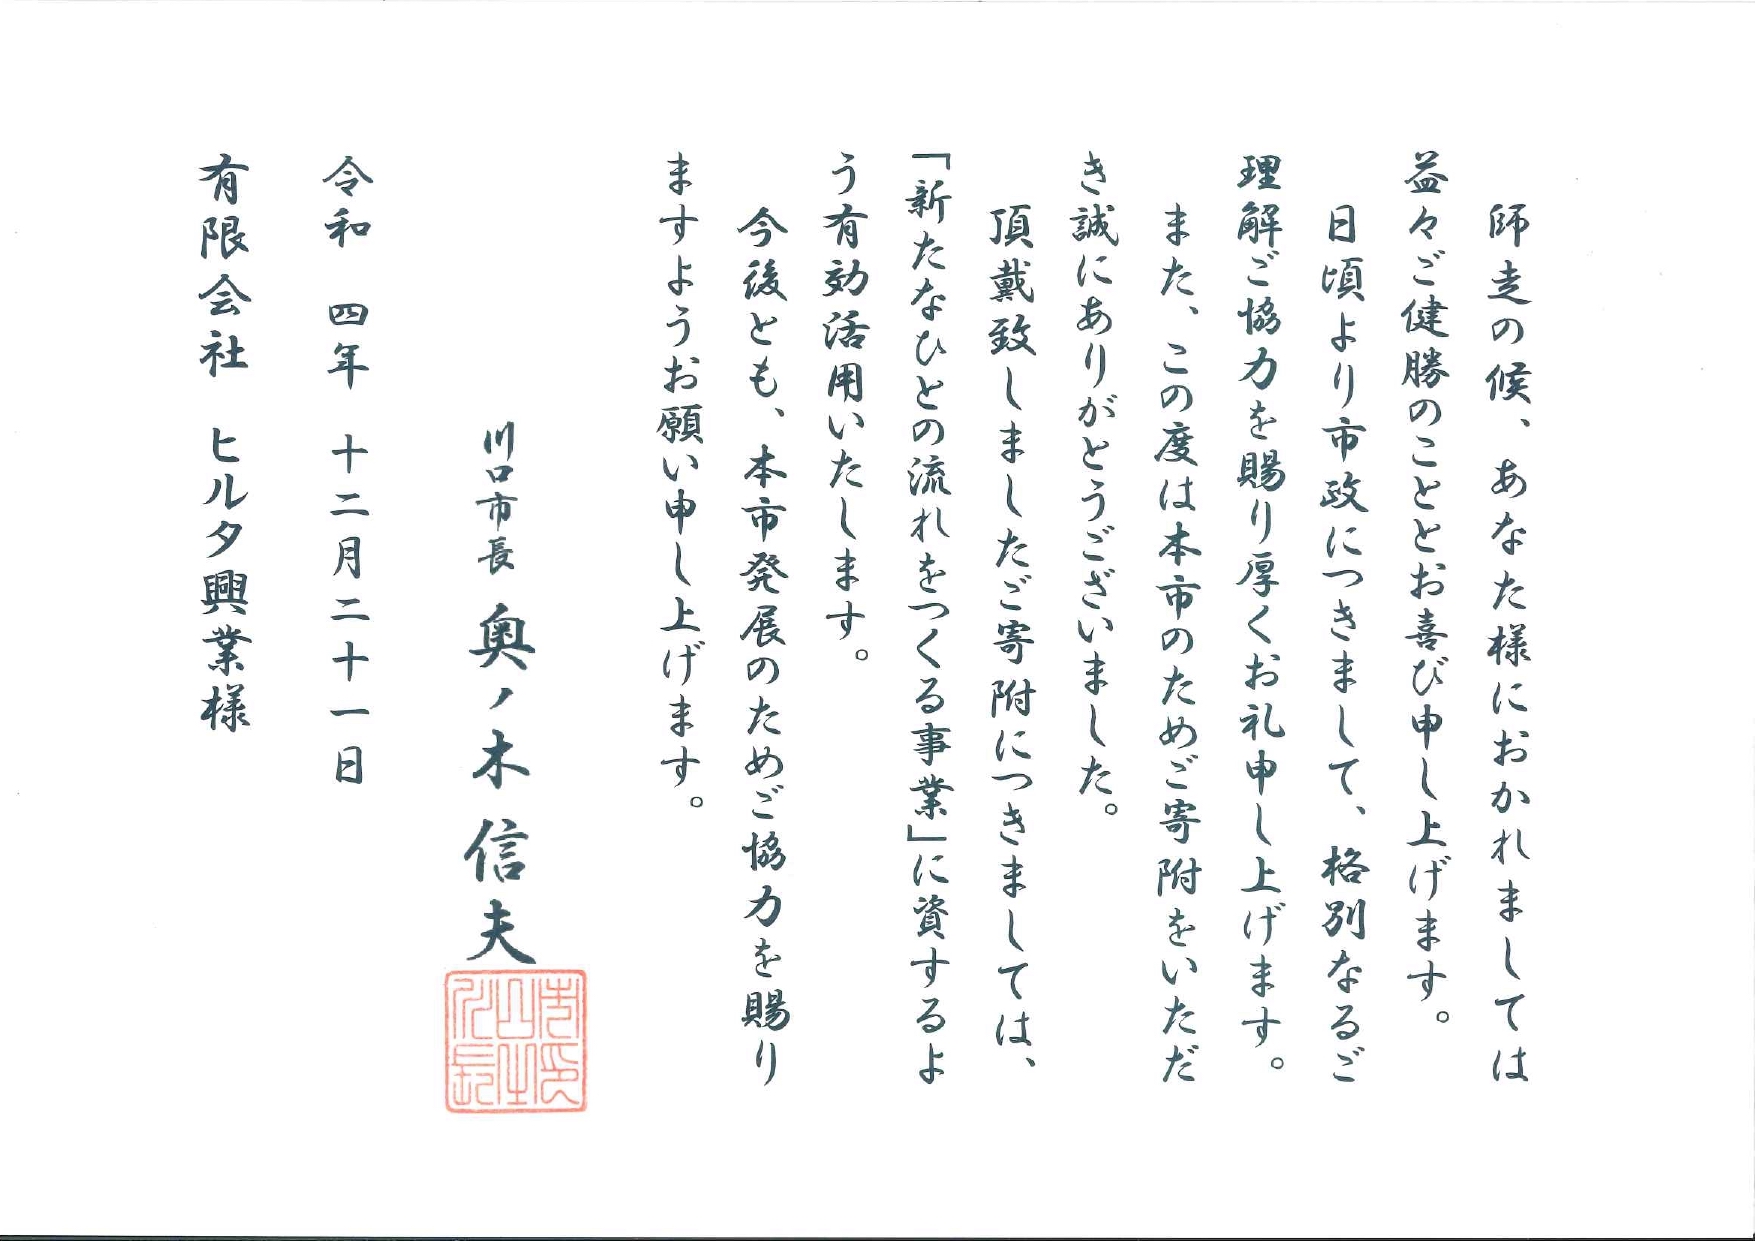 師走の候、あなた様におかれましては
益々ご健勝のこととお喜び申し上げます。
日頃より市政につきまして、格別なるご
理解ご協力を賜り厚くお礼申し上げます。
また、この度は本市のためご寄附をいただ
き誠にありがとうございました。
頂戴致しましたご寄附につきましては、
「新たなひとの流れをつくる事業」に資するよ
う有効活用いたします。
今後とも、本市発展のためご協力を賜り
ますようお願い申し上げます。
川口市長 奥ノ木信夫
市長之印川口
令和 四年 十二月二十一日
有限会社 ヒルタ興業様